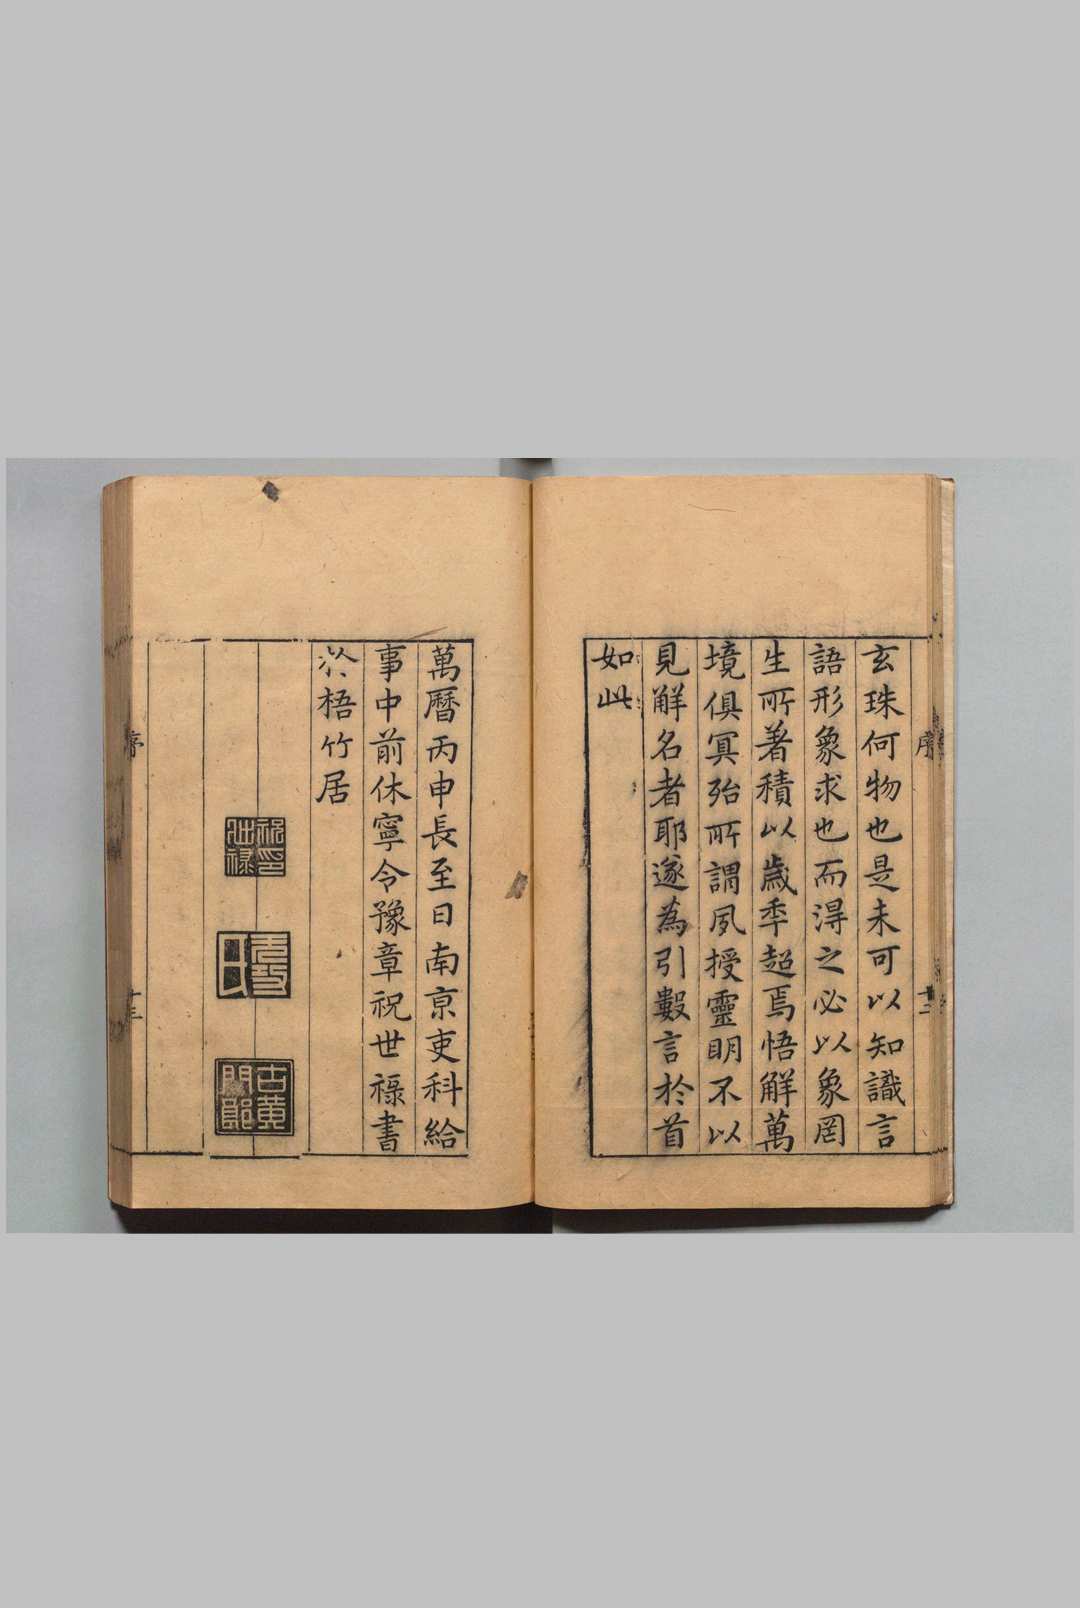 玄珠何物也是未可以知識言
語形象求也而淂之必以象罔
生所著積以歲季超焉悟解萬
境俱冥殆所謂夙授靈明不以
見解名者耶遂為引數言於首
如此
序
十二
萬曆丙申長至日南京吏科給
事中前休寧令豫章祝世祿書
於梧竹居
祝印世祿
古黃門郎
序
十三